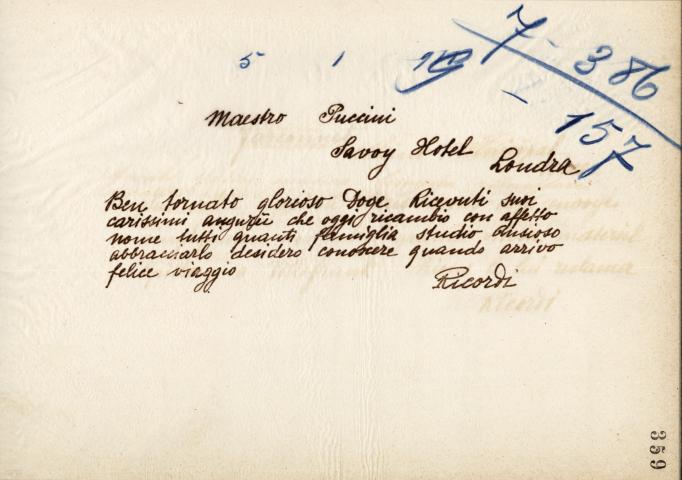 7 - 386
5 1
- 157
Maestro Puccini
Savoy Hotel Londra
Ben tornato glorioso Doge Ricevuti suoi
carissimi augurii che oggi ricambio con affetto
nome tutti quanti famiglia studio Ansioso
abbracciarlo desidero conoscere quando arrivo
felice viaggio
Ricordi
359